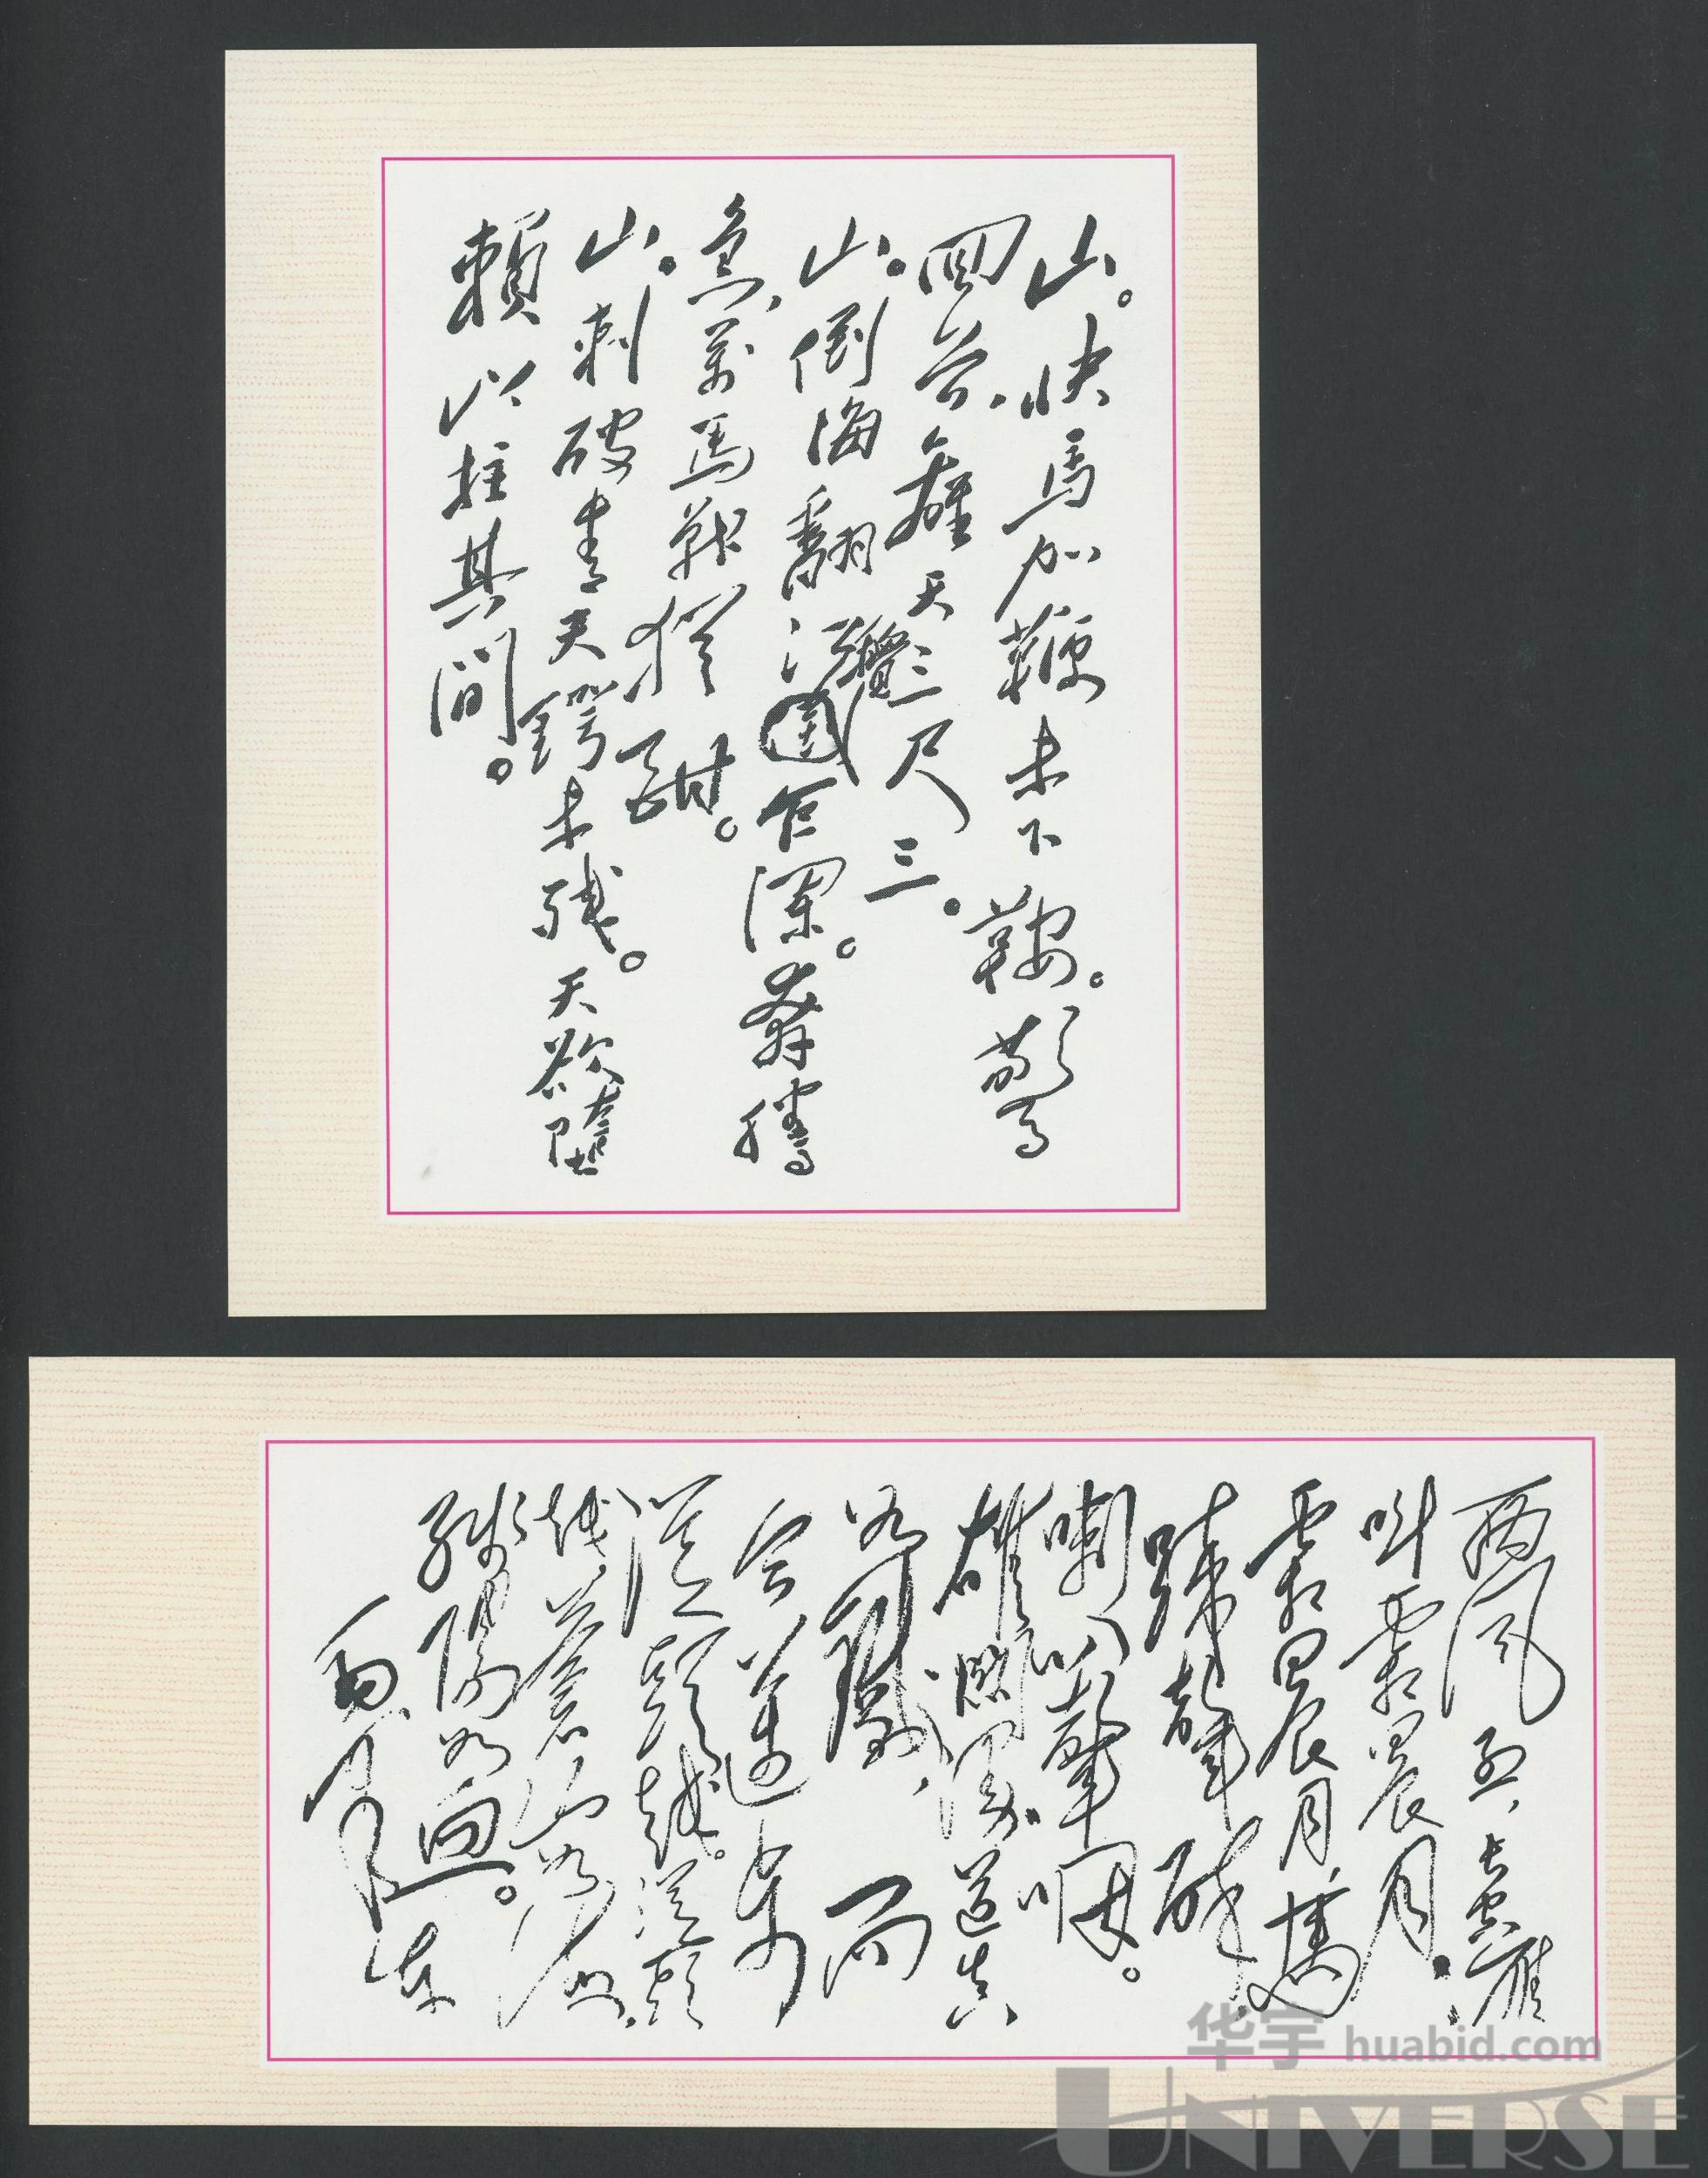 山。快馬加鞭未下鞍。驚
回首,離天三尺三。
山。倒海翻江攪巨瀾。奔騰
急,萬馬戰猶酣。
山。刺破青天鍔未殘。天欲墮
賴以拄其間。
西風烈,長空雁
叫霜晨月。
霜晨月,馬
蹄聲碎
喇叭聲咽。
雄關漫道真
如鐵,而
今邁步
從頭越。從頭
越,蒼山如海,
殘陽如血。
毛澤東
华宇 huabid.com
UNIVERSE